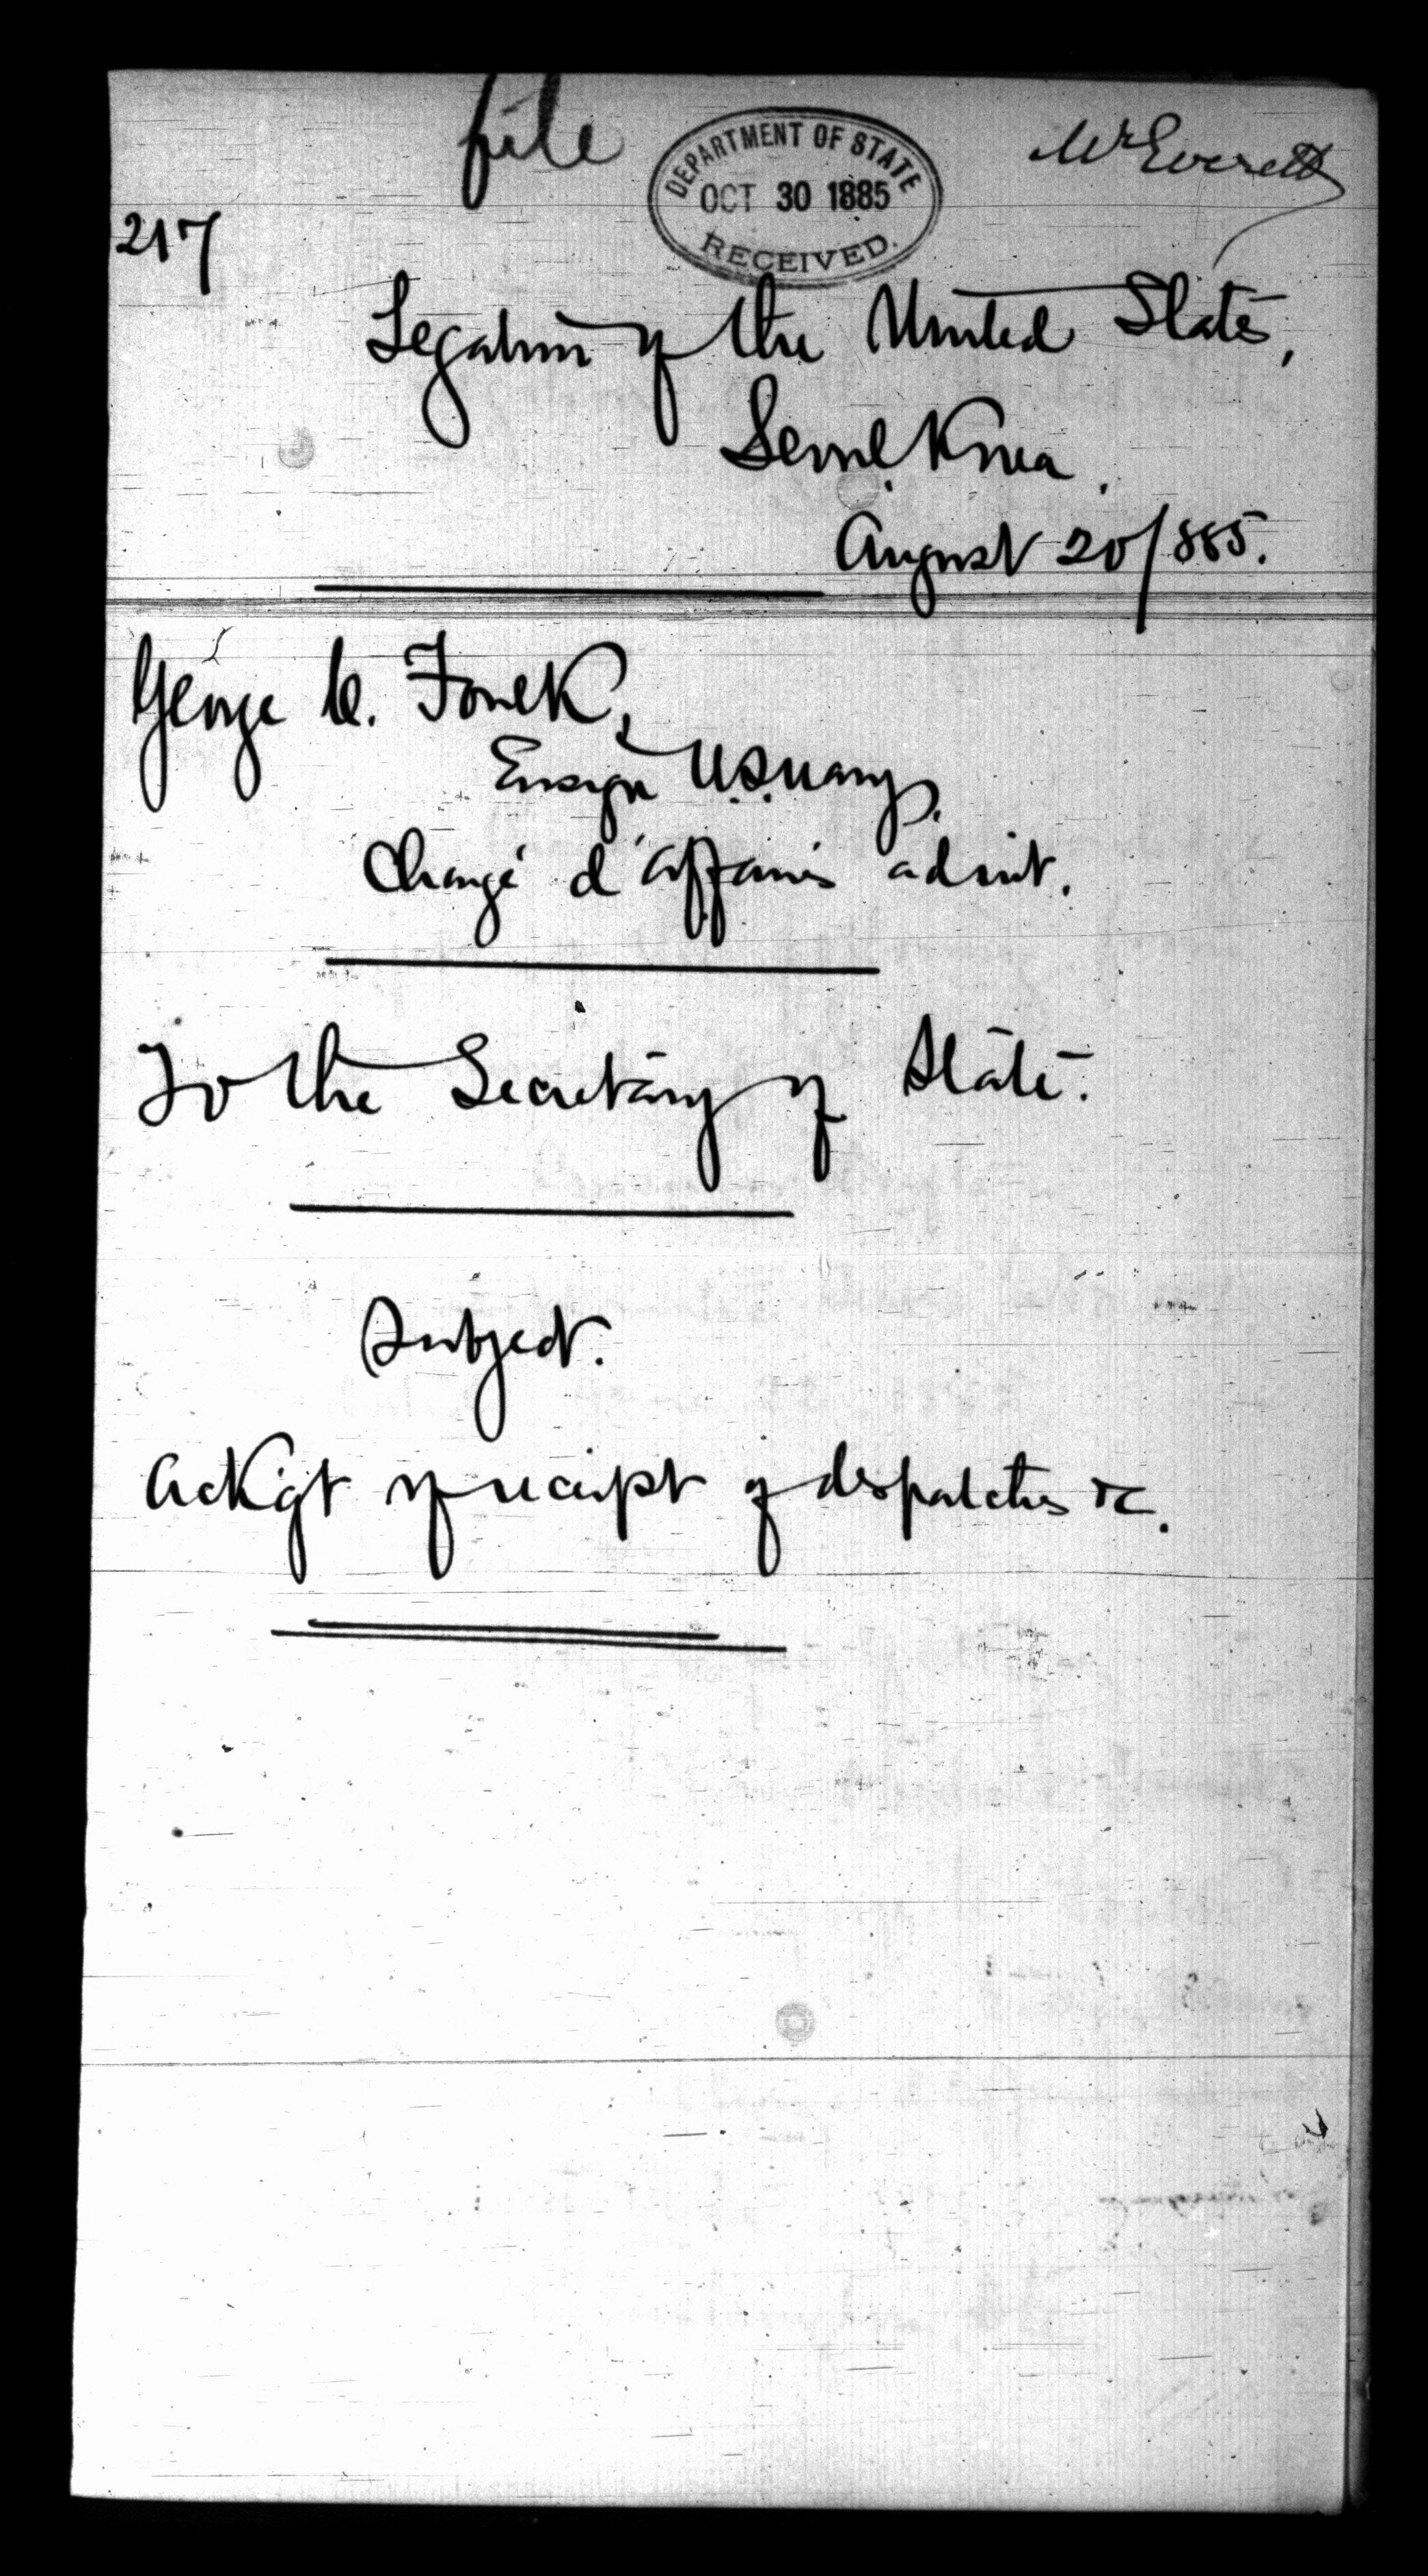 file
DEPARTMENT OF STATE
OCT 30 1885
RECEIVED.
Mr Everett
217
Legation of the United States,
Seoul Korea.
August 20/885.
George C. Foulk,
Ensign U.S. Navy.
Chargé d'affaires ad int.
To the Secretary of State.
Subject.
Ackgt of receipt of despatches &c.